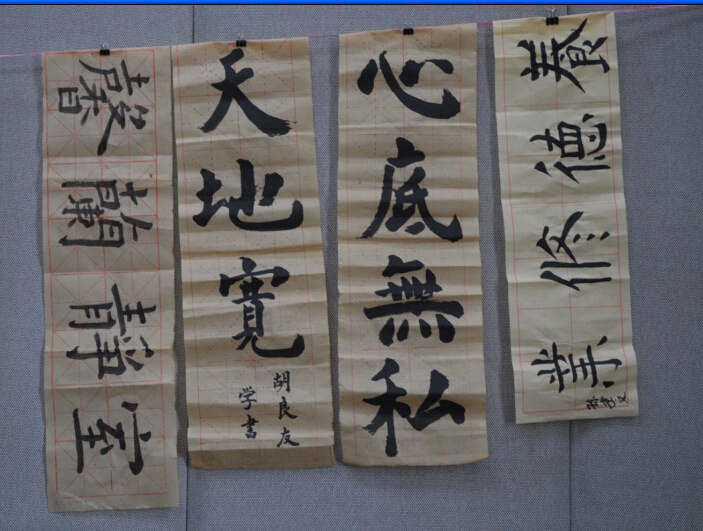 養德修業
心底無私
天地寬
胡良友
学書
室靜蘭馨